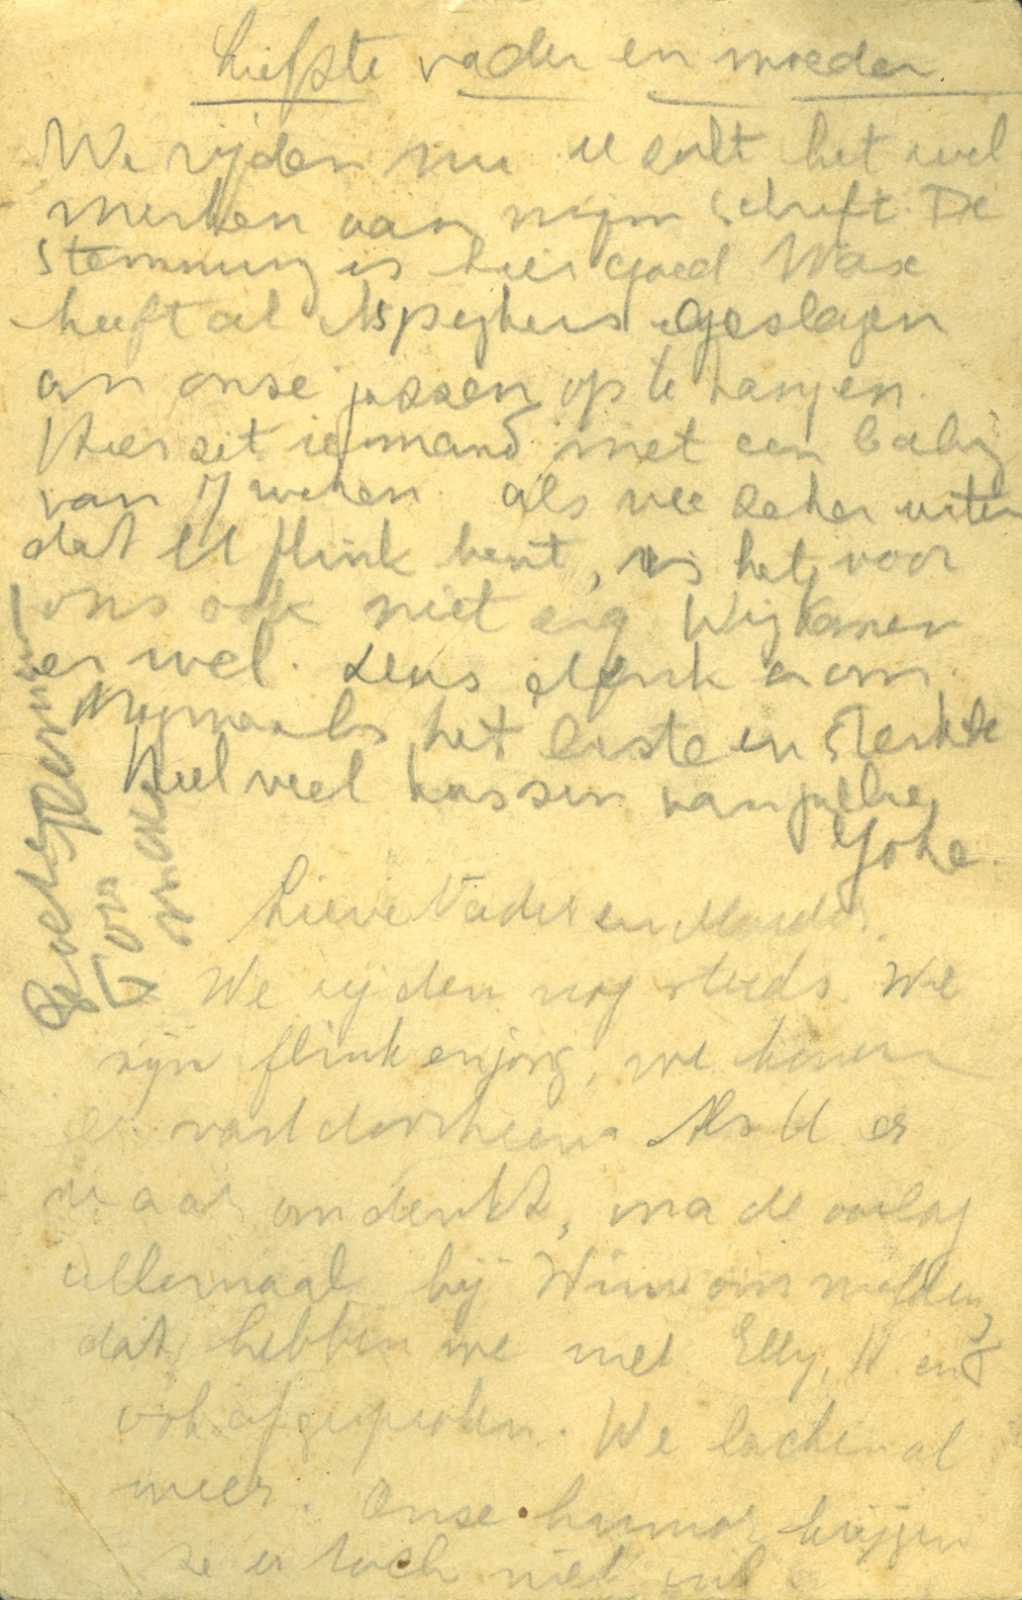 Liefste vader en moeder.
We rijden nu u zult het wel
merken aan mijn schrift. De
stemming is hier goed Max
heeft al spijkers geslagen
om onze jassen op te hangen.
Hier zit iemand met een baby
van 7 weken. als we zeker weten
dat U flink bent, is het voor
ons ook niet erg Wij komen
er wel. Zeus denk erom.
Nogmaals het beste en sterkte
Heel veel kussen van jullie
Joke.
Lieve Vader en Moeder.
We rijden nog steeds. We
zijn flink en jong, we komen
er vast doorheen. Als U er
maar om denkt, na de oorlog
allemaal bij Wim ons melden,
dat hebben we met Elly, en
ook afgesproken. We lachen al
weer. Onze humor krijgen
ze er toch niet uit
voor